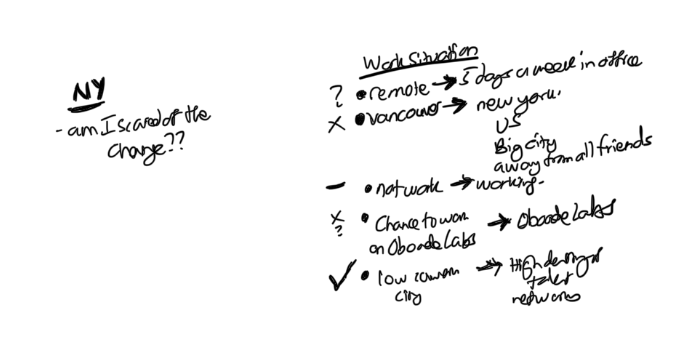 NY
- am I scared of the
change??
Work Situation
? • remote → 5 days a week in office
x • Vancouver → new york.
US
Big city
away from all friends
- • not work → working.
x ? • Chance to work → Oboode Labs
on Oboode Labs
✓ • low → High density of
city talent